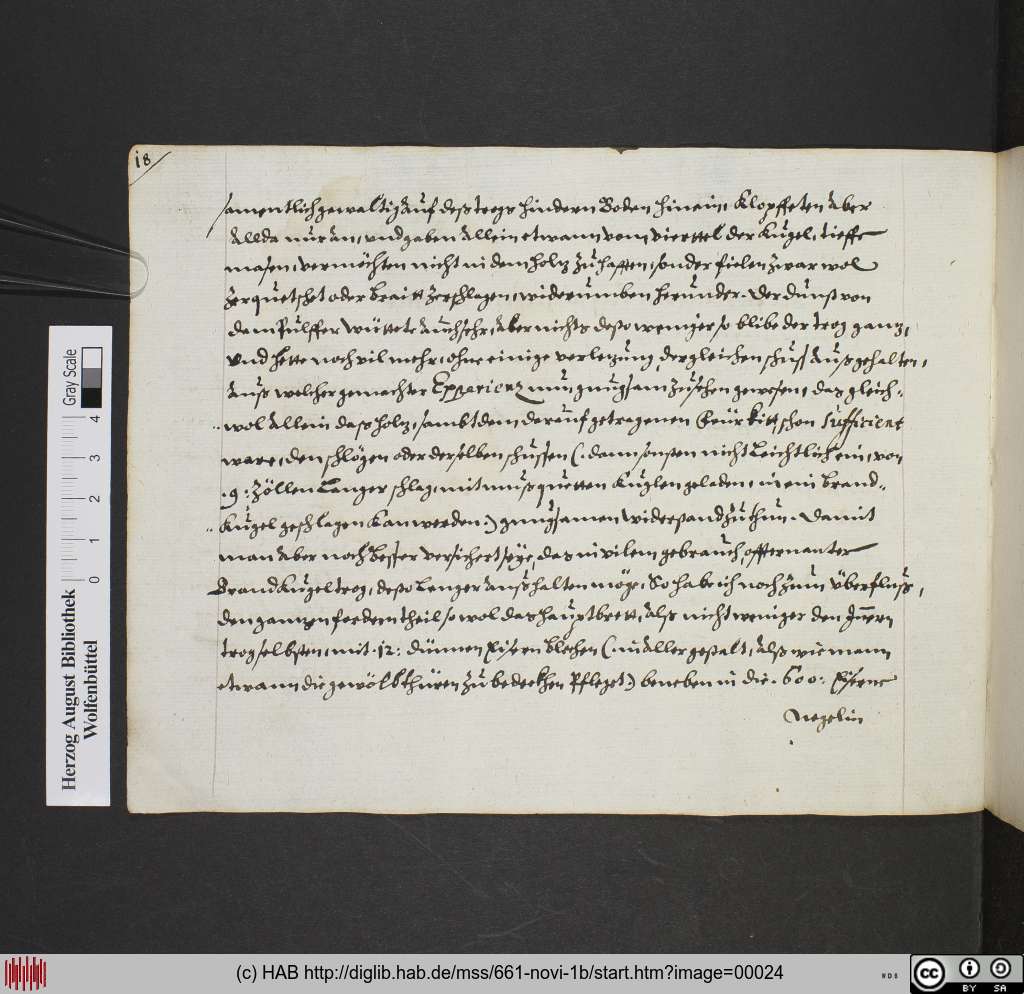 18
samentlich gewaltig auf deß trogs hindern Boden hinein, Klopffeten aber
allda nur an, und gaben allein etwann vom vierttel der Kugel, tieffe
masen, vermöchten nicht in dem holz zuhafften, sonder fielen zwar wol
zerquetschet oder braitt zerschlagen, widerumben herunder. Der dunst von
dem Pulffer wüttete auch sehr, aber nichts desto weniger so blibe der trog ganz,
und hette noch vil mehr, ohne einige verlezung, dergleichen schuss außgehalten,
auß welcher gemachter Experienz nun gnugsam zusehen gewesen, das gleich-
wol allein das holz, sambt dem darauf getragenen Feürkitt, schon sufficient
ware, den schlögen oder derselben schüssen (. dann sonsten nicht Leichtlich ein, von
.9: Zöllen Langer schlag, mit mußquetten Kuglen geladen, in ein brand-
Kugel geschlagen kan werden.) gnugsamen widerstand zuthun. Damit
man aber noch besser versichert seye, das in vilem gebrauch, offternanter
Brand Kugel trog, desto Lenger außhalten möge, So hab ich noch zum überfluß,
den ganzen fordern theil so wol das hauptbrett, alß nicht weniger den Innern
trog selbsten, mit .12: dünnen Eisern blechen (. in aller gestalt, alß wie mann
etwann die gewölbthüren zubedeckhen Pfleget.) beneben in die .600: Eisene
Negelin
Herzog August Bibliothek
Wolfenbüttel
0 1 2 3 4
Gray Scale
(c) HAB http://diglib.hab.de/mss/661-novi-1b/start.htm?image=00024
WDB
cc
BY SA